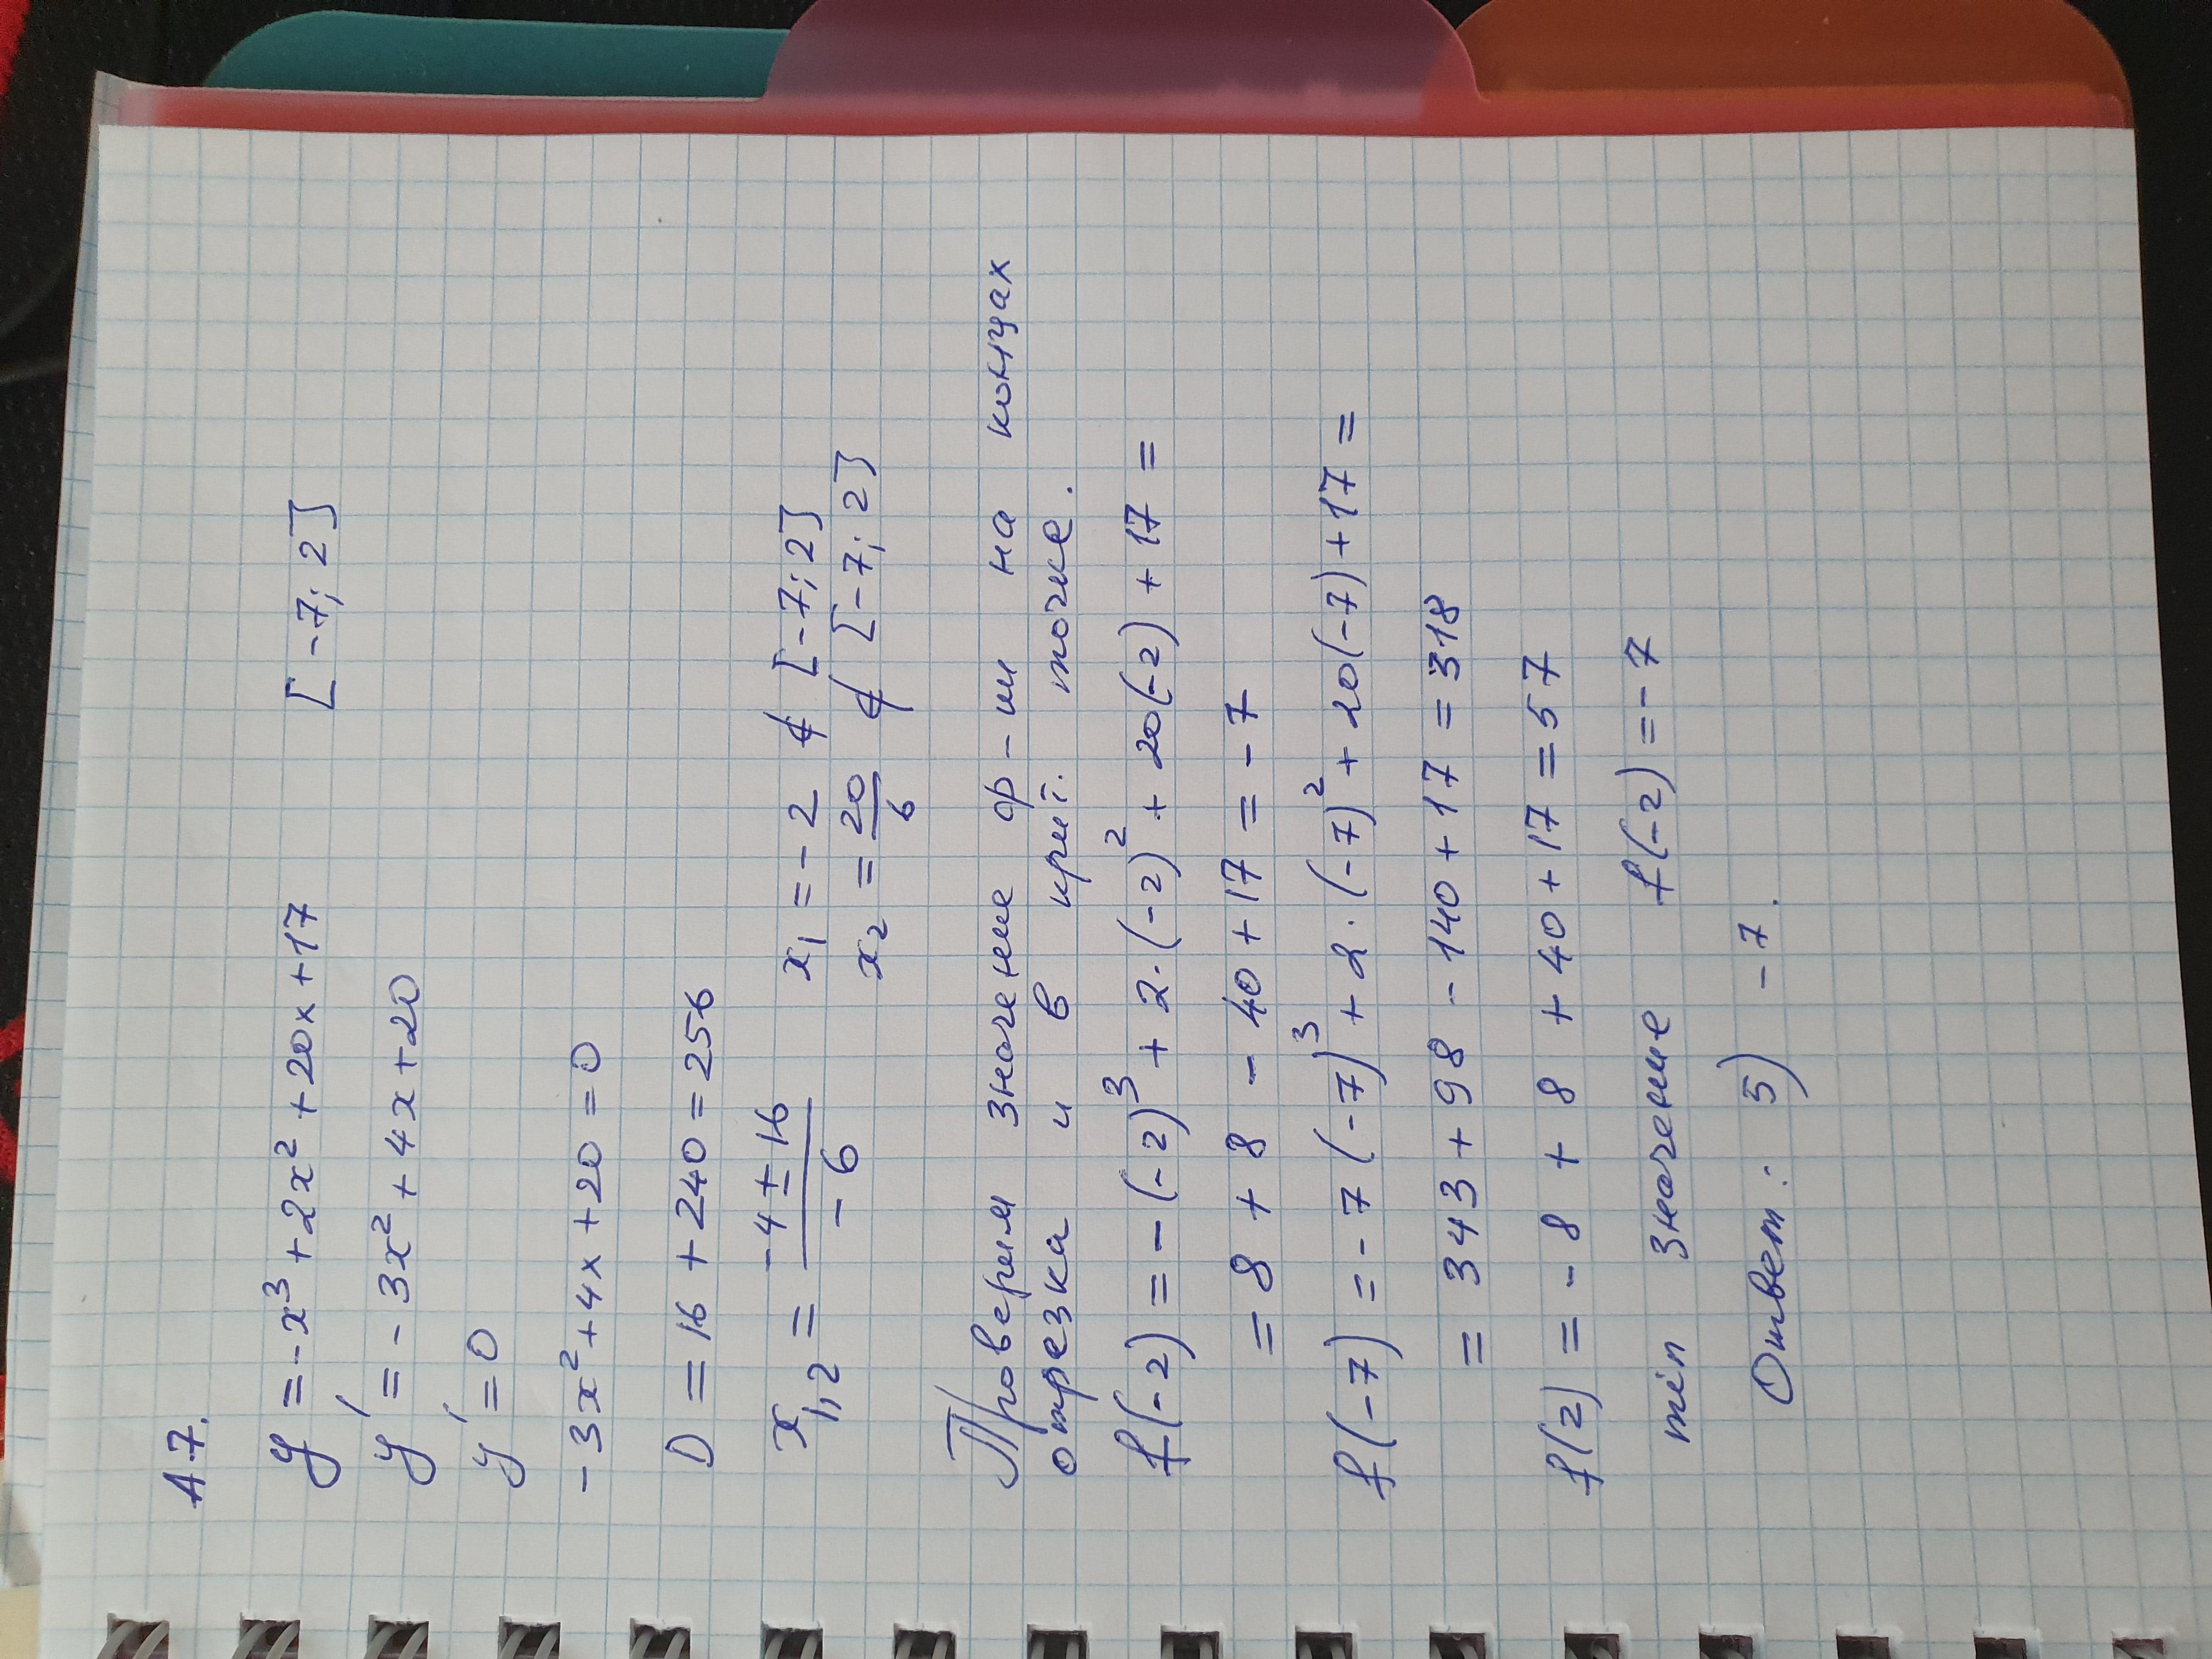 А.7.
y = -x³ + 2x² + 20x + 17 [-7; 2]
y' = -3x² + 4x + 20
y' = 0
-3x² + 4x + 20 = 0
D = 16 + 240 = 256
x₁,₂ = (-4 ± 16)/(-6) x₁ = -2 ∉ [-7; 2]
x₂ = 20/6 ∉ [-7; 2]
Проверим значение ф-ии на концах
отрезка и в крит. точке.
f(-2) = -(-2)³ + 2·(-2)² + 20(-2) + 17 =
= 8 + 8 - 40 + 17 = -7
f(-7) = -7(-7)³ + 2·(-7)² + 20(-7) + 17 =
= 343 + 98 - 140 + 17 = 318
f(2) = -8 + 8 + 40 + 17 = 57
min значение f(-2) = -7
Ответ: 5) -7.